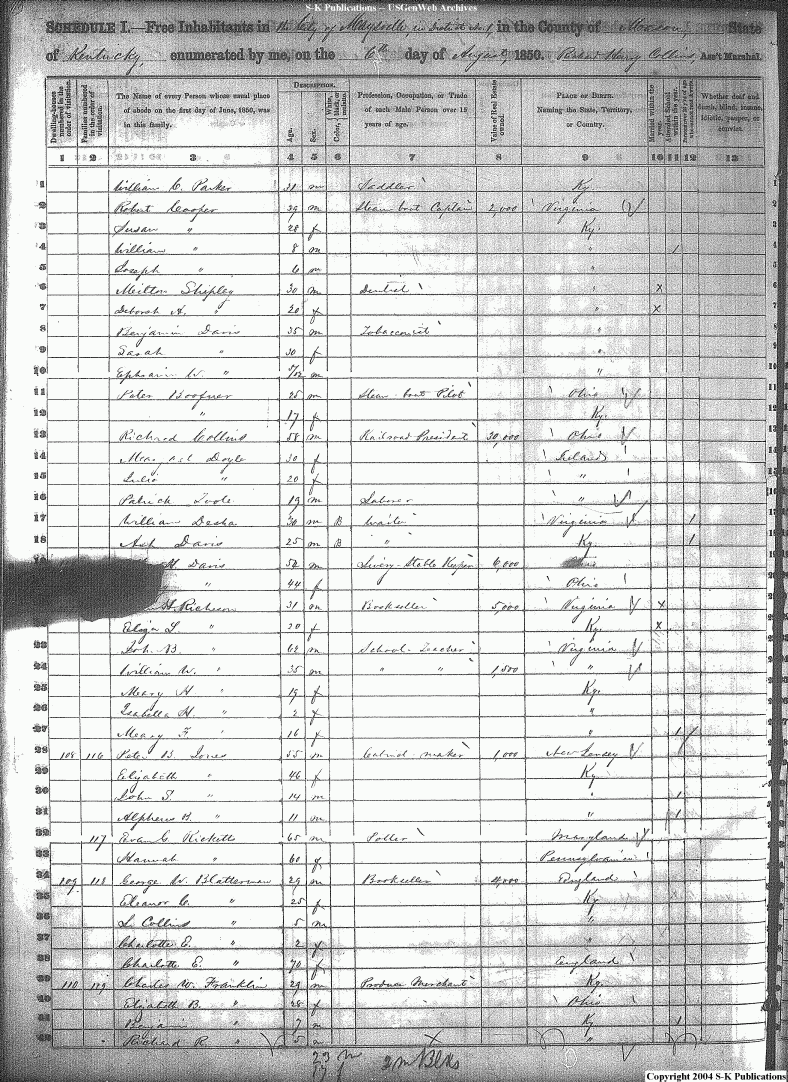 S-K Publications -- USGenWeb Archives
SCHEDULE I.—Free Inhabitants in the City of Maysville, in District No. 1, in the County of Mason, State
of Kentucky, enumerated by me, on the 6th day of August, 1850. Robert Harry Collins, Ass't Marshal.
Dwelling-houses numbered in the order of visitation.
Families numbered in the order of visitation.
The Name of every Person whose usual place of abode on the first day of June, 1850, was in this family.
DESCRIPTION.
Age.
Sex.
White, black, or mulatto.
Color,
Profession, Occupation, or Trade of each Male Person over 15 years of age.
Value of Real Estate owned.
PLACE OF BIRTH.
Naming the State, Territory, or Country.
Married within the year.
Attended School within the year.
Whether deaf and dumb, blind, insane, idiotic, pauper, or convict.
1 2 3 4 5 6 7 8 9 10 11 12 13
1 William C. Parker 31 m Saddler Ky. 1
2 Robert Cooper 39 m Steam boat Captain 2,000 Virginia 2
3 Susan " 28 f Ky. 3
4 William " 8 m " / 4
5 Joseph " 6 m " 5
6 Milton Shipley 30 m Dentist " x 6
7 Deborah A. " 20 f " x 7
8 Benjamin Davis 35 m Tobacconist " 8
9 Sarah " 30 f " 9
10 Ephraim W. " 5/12 m " 10
11 Peter 25 m Steam boat Pilot Ohio 11
12 " 17 f Ky. 12
13 Richard Collins 58 m Railroad President 30,000 Ohio 13
14 Doyle 30 f Ireland 14
15 Julia " 20 f " 15
16 Patrick Toole 19 m Laborer " 16
17 William Desha 30 m B Waiter Virginia / 17
18 Ash Davis 25 m B " Ky. / 18
H. Davis 52 m Livery-Stable Keeper 6,000
" 44 f Ohio
H. Richeson 31 m Bookseller 5,000 Virginia x
Eliza L. " 20 f Ky. x
23 Joh. B. " 62 m School-Teacher Virginia
24 William W. " 35 m " " 1,500 "
25 Mary H. " 19 f Ky.
26 Isabella H. " 2 f "
27 Mary F. " 16 f " /
28 108 116 Peter B. Jones 55 m Cabinet-maker 1,000 New Jersey
29 Elizabeth " 46 f Ky.
30 John S. " 14 m " /
31 Alpheus B. " 11 m " /
32 117 Evan C. Ricketts 65 m Maryland
33 Hannah " 60 f Pennsylvania
34 109 118 George W. Blatterman 29 m Bookseller 4,000 England
35 Eleanor C. " 25 f Ky.
36 L. Collins " 5 m "
37 Charlotte E. " 2 f "
38 Charlotte E. " 70 f England
39 110 119 Charles W. Franklin 29 m Produce Merchant Ky.
40 Elizabeth B. " 28 f Ohio
41 Benjamin " 7 m Ky. /
42 Richard R. " 5 m "
23 m
17 f
2 m Blks
Copyright 2004 S-K Publications